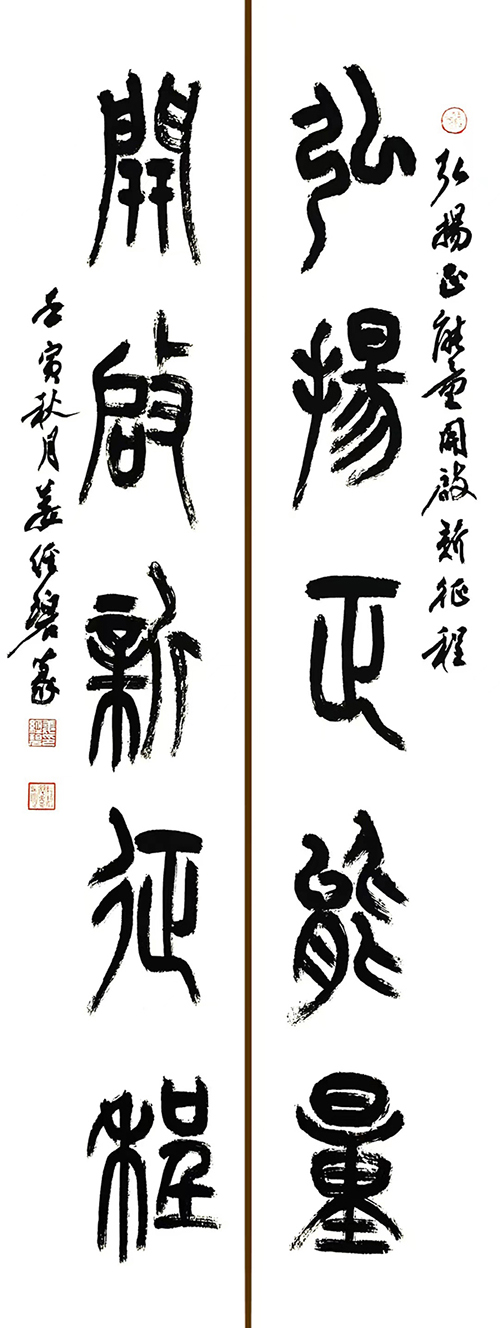 弘揚正能量開啟新征程
弘揚正能量
開启新征程
壬寅秋月碧篆